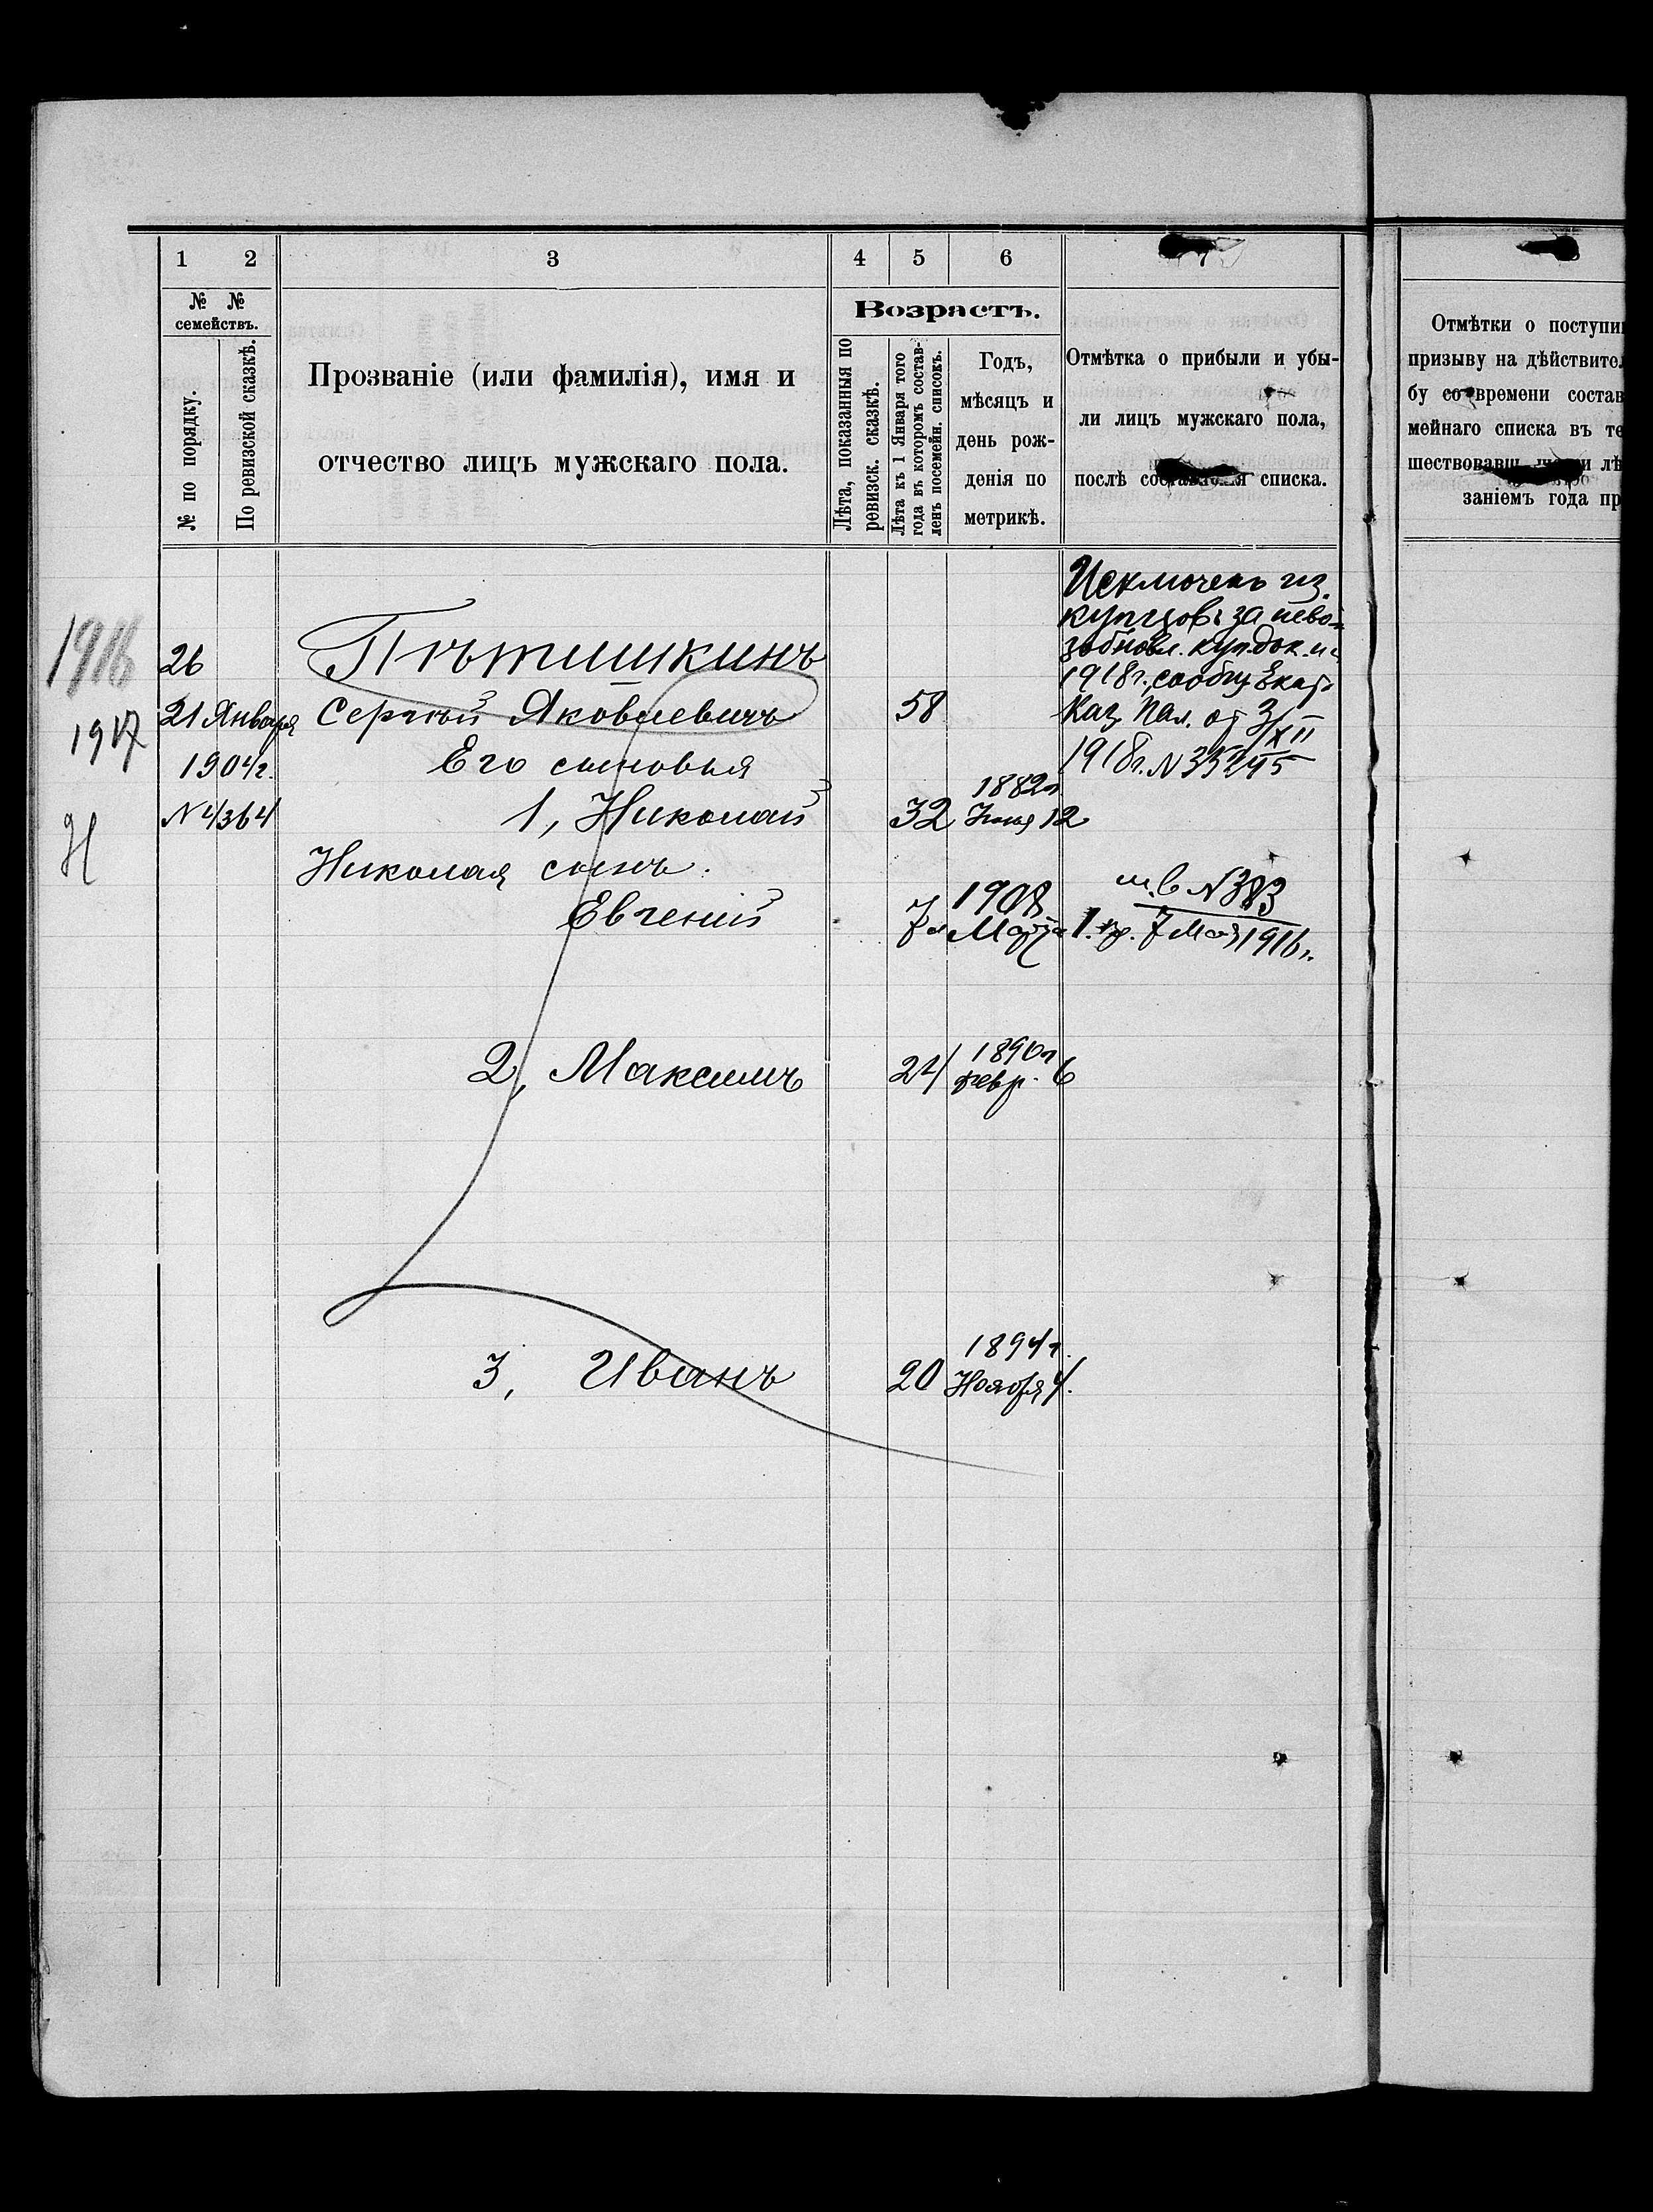 1 2 3 4 5 6 7
№ № семействъ.
№ по порядку.
По ревизской сказкѣ.
Прозваніе (или фамилія), имя и
отчество лицъ мужскаго пола.
Возрастъ.
Лѣта, показанныя по
ревизск. сказкѣ.
Лѣта къ 1 Января того
года въ которомъ состав-
ленъ посемейн. списокъ.
Годъ,
мѣсяцъ и
день рож-
денія по
метрикѣ.
Отмѣтка о прибыли и убы-
ли лицъ мужскаго пола,
послѣ составленія списка.
Отмѣтки о поступи
призыву на дѣйствител
бу со времени состав
мейнаго списка въ те
шествовавш лѣ
заніемъ года пр
Исключенъ из
купцовъ за нево-
зобновл. куп. док. на
1918 г., сообщ Екат.
Каз. Пал. от 3/XII
1918 г. N 35245
1916
1917
Н
26
21 Января
1904 г.
N 4364
Пѣтишкинъ
Сергѣй Яковлевичъ 58
Его сыновья
1, Николай 32 1882 г. Іюня 12
Николая сынъ:
Евгеній 7 л 1908 Марта 1.
N 383
7 Мая 1916 г.
2, Максимъ 24 1890 г. февр. 6
3, Иванъ 20 1894 г. Ноября 4.